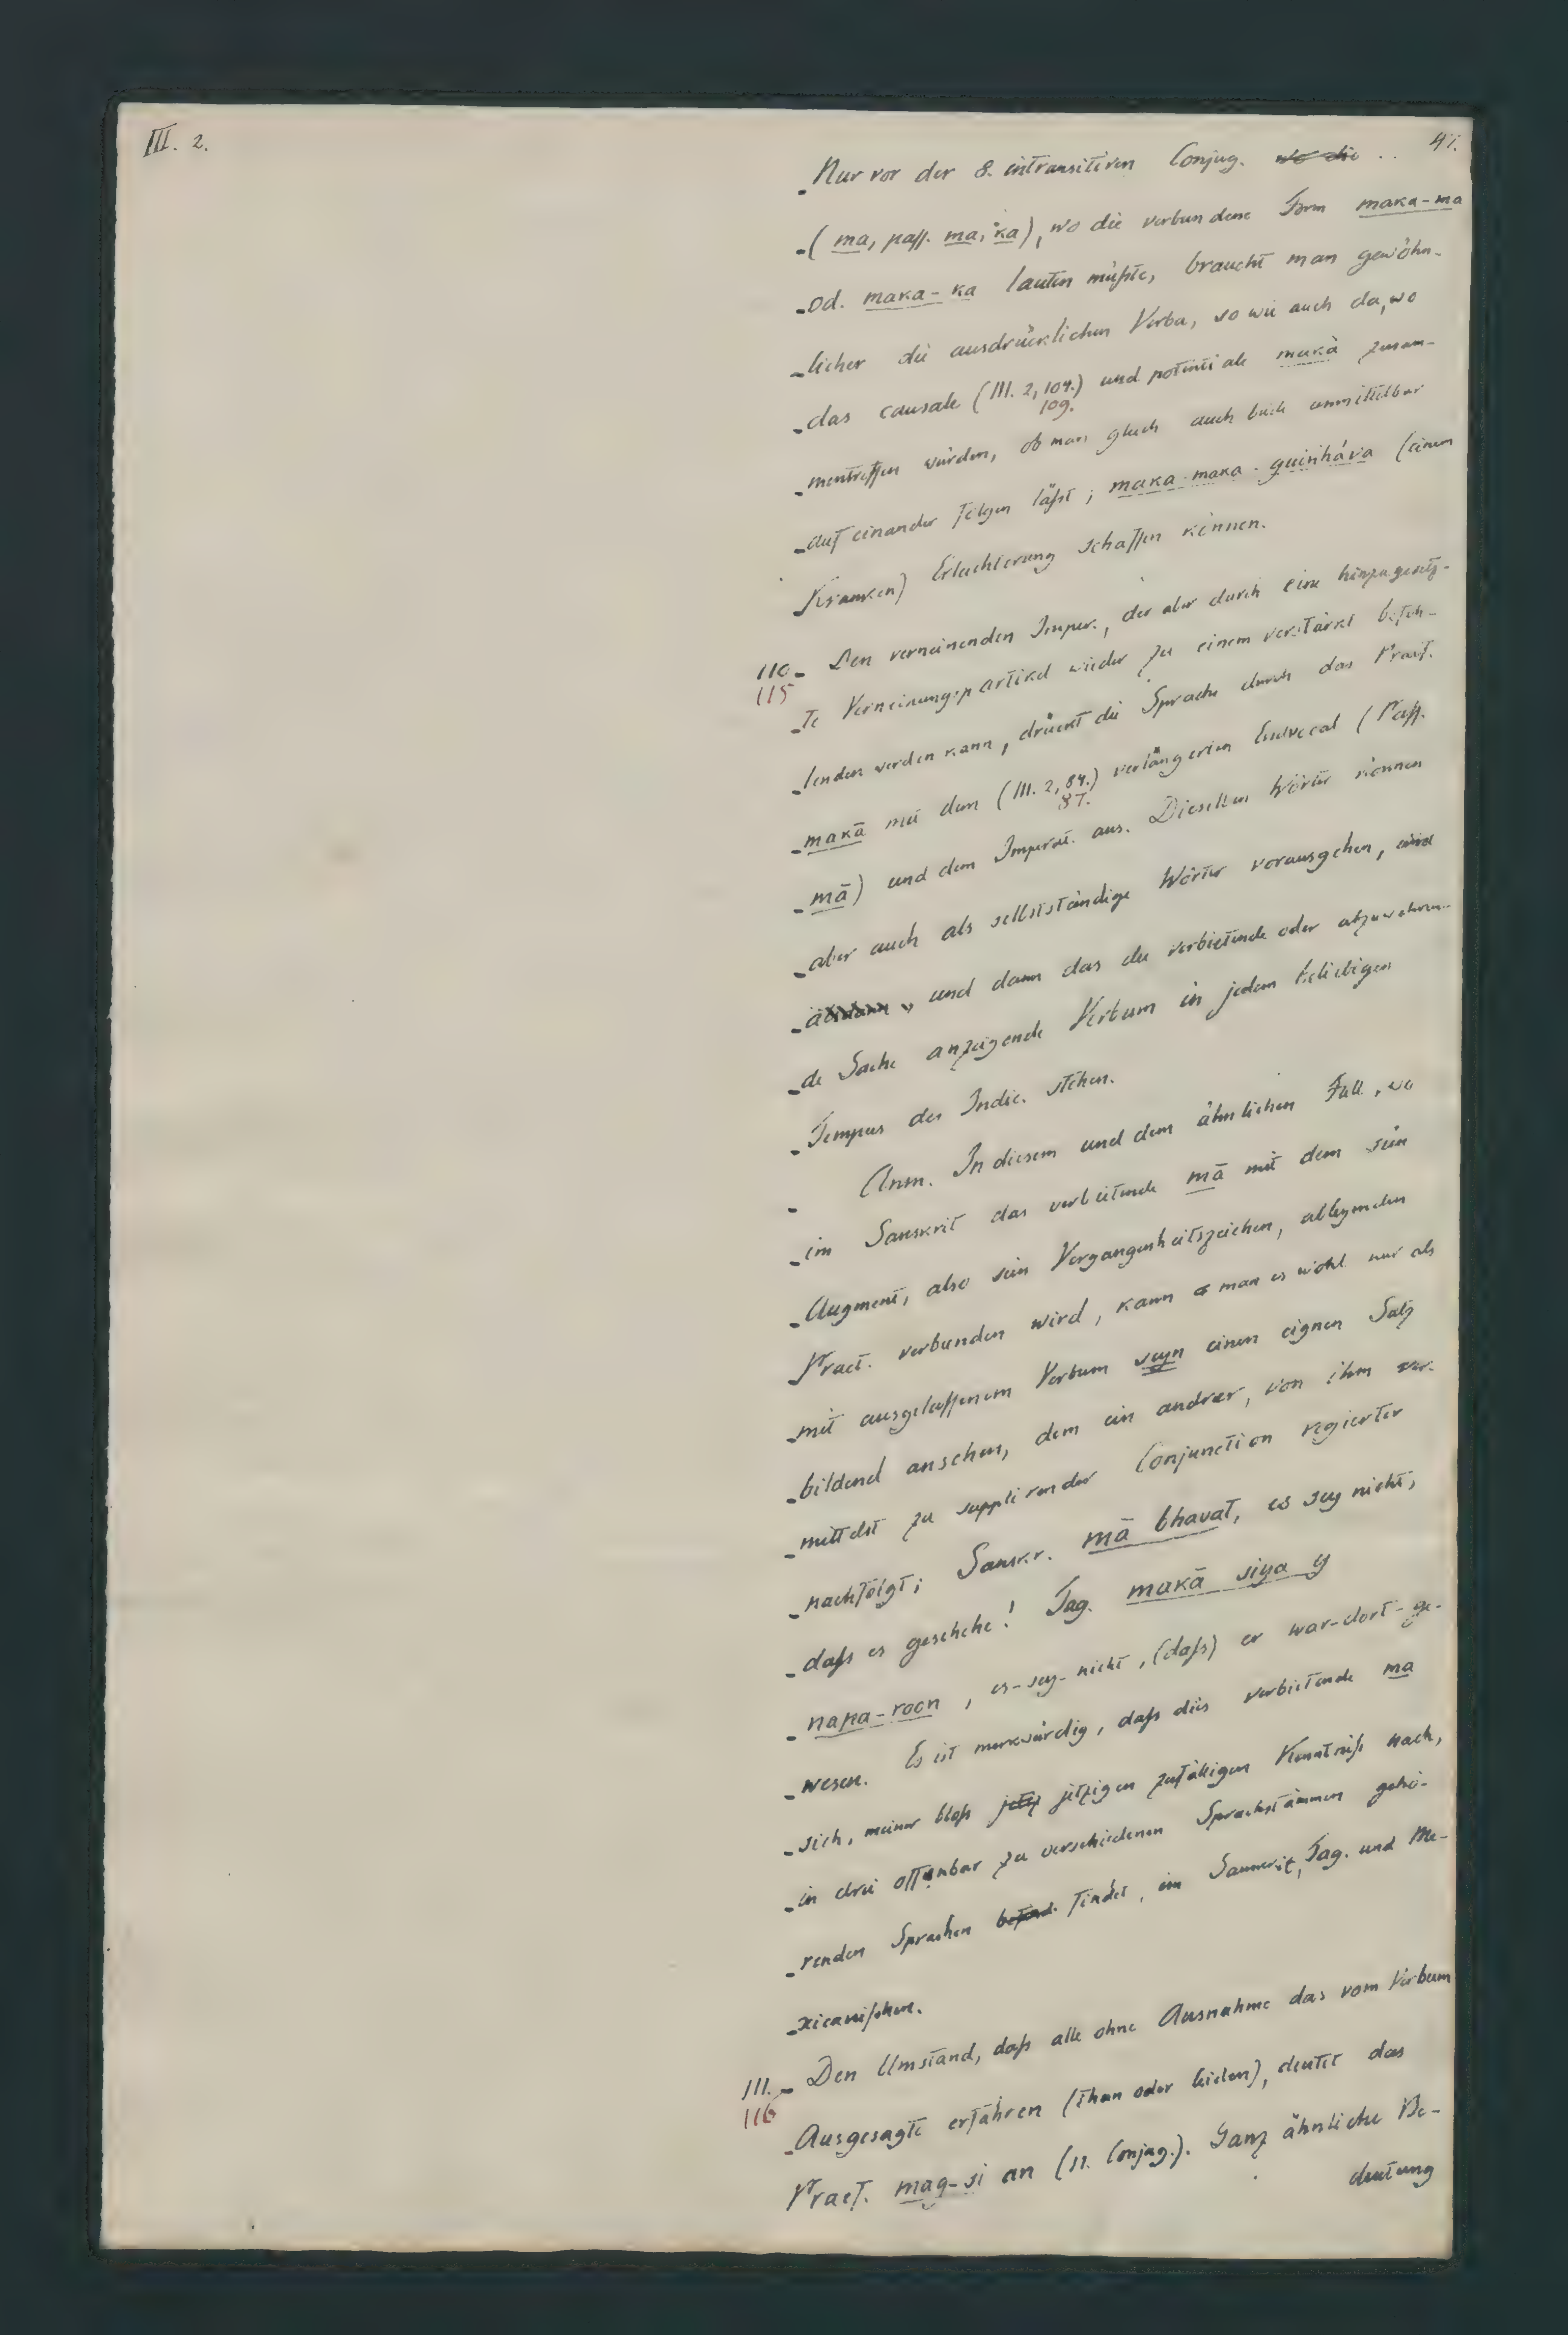 III. 2.
47.
Nur vor der 8. intransitiven Conjug. wo die ..
(ma, pass. ma, ka), wo die verbundene Form maka-ma
od. maka-ka lauten müßte, braucht man gewöhn-
licher die ausdrücklichen Verba, so wie auch da, wo
das causale (III. 2, 104.) und potentiale makà zusam-
109.
mentreffen würden, ob man gleich auch beide unmittelbar
auf einander folgen läßt; maka-maka-guinháva (einem
Kranken) Erleichterung schaffen können.
110 Den verneinenden Imper., der aber durch eine hinzugesetz-
115
te Verneinungspartikel wieder zu einem verstärkt befeh-
lenden werden kann, drückt die Sprache durch das Praef.
makā mit dem (III. 2, 84.) verlängerten Endvocal (Pass.
87.
mā) und dem Imperat. aus. Dieselben Wörter können
aber auch als selbstständige Wörter vorausgehen, und
alsdann, und dann das die verbietende oder abzuwehren-
de Sache anzeigende Verbum in jedem beliebigen
Tempus des Indic. stehen.
Anm. In diesem und dem ähnlichen Fall, wo
im Sanskrit das verbietende mā mit dem sein
Augment, also sein Vergangenheitszeichen, ablegenden
Praet. verbunden wird, kann man es wohl nur als
mit ausgelassenem Verbum seyn einen eignen Satz
bildend ansehen, dem ein andrer, von ihm ver-
mittelst zu supplirender Conjunction regierter
nachfolgt; Sanskr. mā bhavat, es sey nicht,
daß es geschehe! Tag. makā siya y
napa-roon, es-sey-nicht, (daß) er war-dort-ge-
wesen. Es ist merkwürdig, daß dies verbietende ma
sich, meiner bloß jetz jetzigen zufälligen Kenntniß nach,
in drei offenbar zu verschiedenen Sprachstämmen gehö-
renden Sprachen befind. findet, im Sanskrit, Tag. und Me-
xicanischen.
111. Den Umstand, daß alle ohne Ausnahme das vom Verbum
116
Ausgesagte erfahren (thun oder leiden), deutet das
Praef. mag-si an (11. Conjug.). Ganz ähnliche Be-
deutung